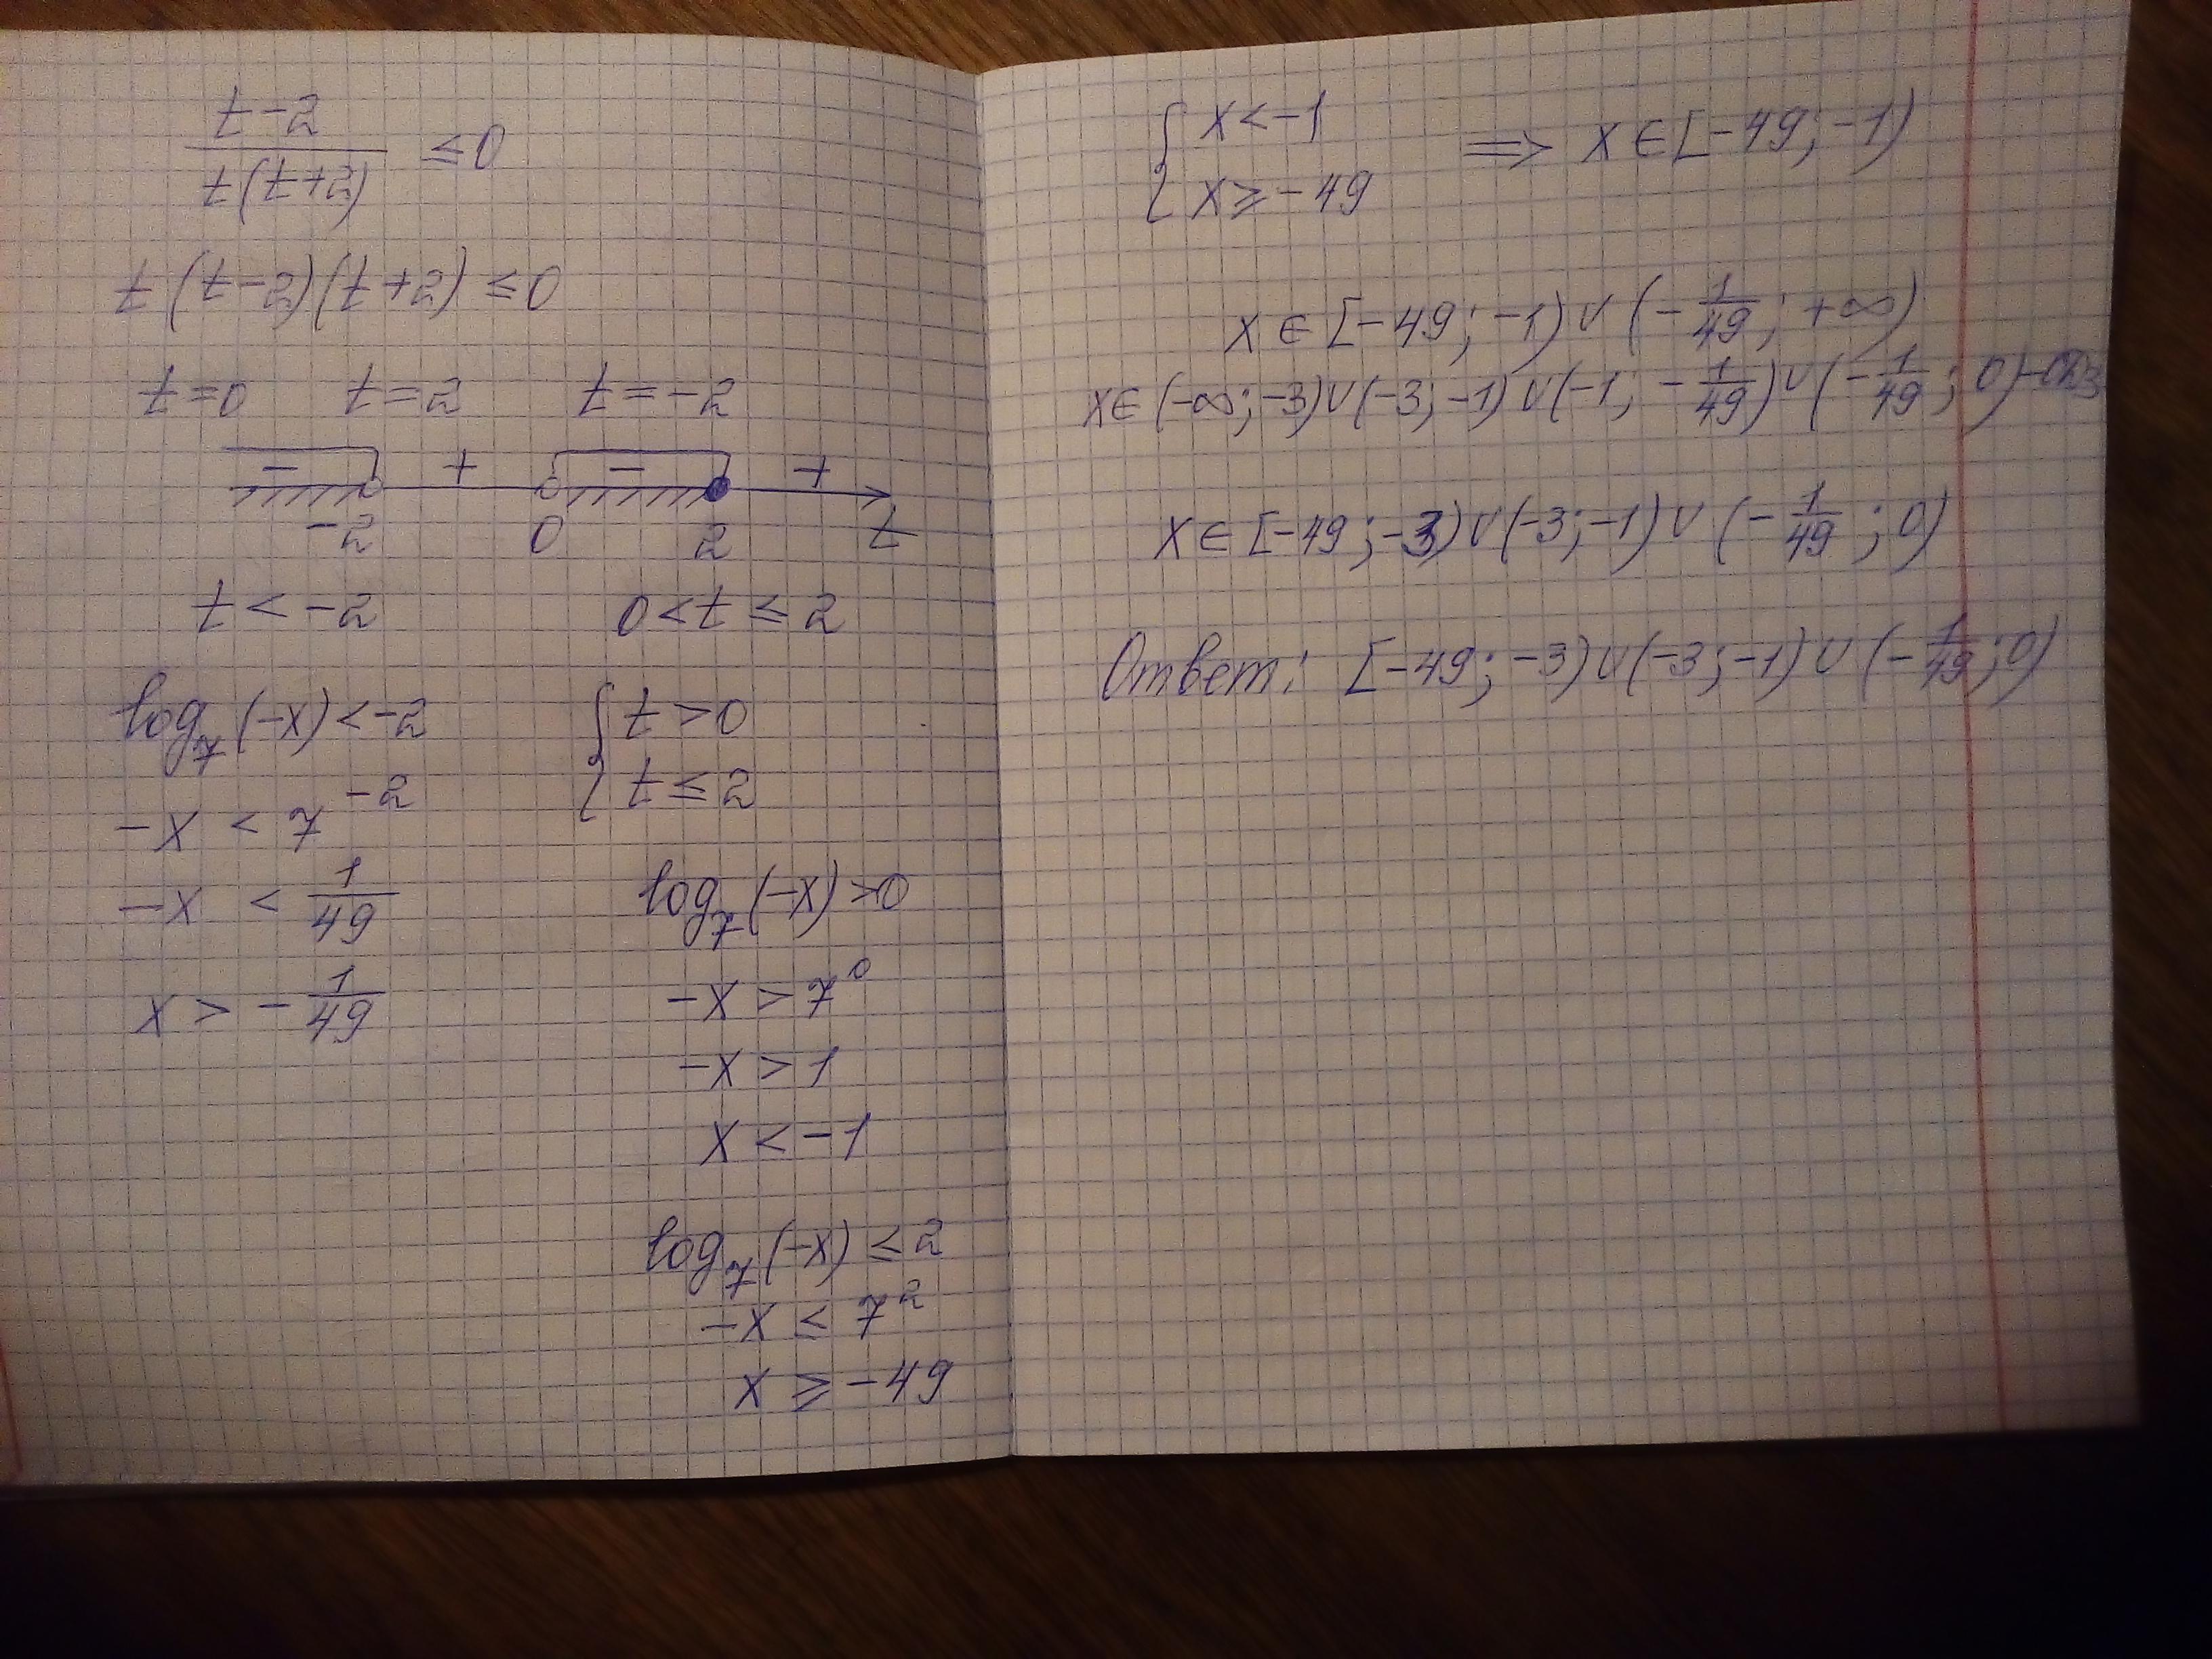 t-2
t(t+2) ≤0
t(t-2)(t+2) ≤0
t=0 t=2 t=-2
- + - +
-2 0 2 t
t < -2 0 < t ≤ 2
log₇(-x) < -2
-x < 7⁻²
-x < 1/49
x > -1/49
{ t > 0
t ≤ 2
log₇(-x) > 0
-x > 7⁰
-x > 1
x < -1
log₇(-x) ≤ 2
-x ≤ 7²
x ≥ -49
{ x < -1
x ≥ -49 ⇒ x ∈ [-49; -1)
x ∈ [-49; -1) ∪ (-1/49; +∞)
x ∈ (-∞; -3) ∪ (-3; -1) ∪ (-1; -1/49) ∪ (-1/49; 0) - ОДЗ
x ∈ [-49; -3) ∪ (-3; -1) ∪ (-1/49; 0)
Ответ: [-49; -3) ∪ (-3; -1) ∪ (-1/49; 0)